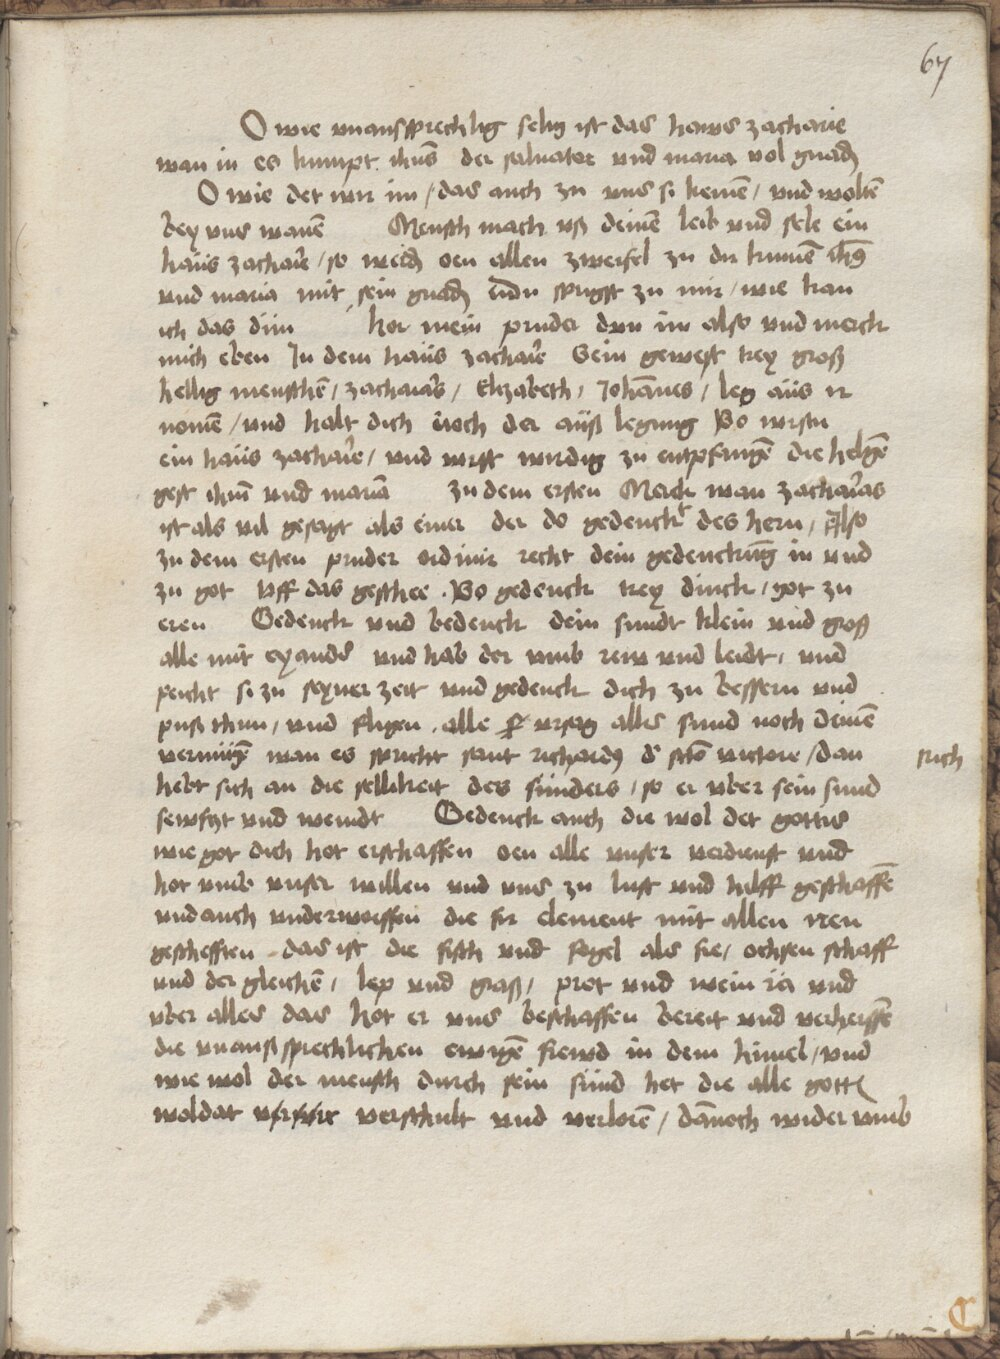 67
O wie vnaussprechlig selig ist das haws zacharie
wan in es kumpt ihus der saluator vnd maria vol gnad
O wie det wir im / das auch zu vns si kemē / vnd woltē
bey vns wanē Mensch mach vß deinē leib vnd sele ein
haüs zacharie / so werdē oen allen zweifel zu dir kumē ihs
vnd maria mit sein gnadē du sprigst zu mir / wie kan
ich das din hor mein pruder dun im also vnd merck
mich eben In dem haüs zacharie Sein gewest trey groß
hellig menschē / zacharias / Elizabeth / Johānes / leg aüs ir
nomē / vnd halt dich noch der aüß legung So wirstu
ein haüs zacharie / vnd wirst wirdig zu entpfangē die helgē
gest ihm vnd maria zu dem ersten Merck wan zacharias
ist als vil gesagt als einer der do gedenckt des hern / Also
zu dem ersten pruder ordinir recht dein gedenckūg in vnd
zu got vff das geschee . So gedenck trey dinck / got zu
eren Gedenck vnd bedenck dein sundt klein vnd groß
alle mit eyander vnd hab der vmb rew vnd leidt / vnd
peicht si zu seyner zeit vnd gedenck dich zu bessern vnd
puß thun / vnd fligen alle vrsag alles sund noch deinē
vermügē wan es spricht sant richardꝰ d scō victore / dan
sich
hebt sich an die sellikeit des sünders / so er vber sein sund
sewfzt vnd weindt Gedenck auch die wol det gottis
wie got dich hot erschaffen oen alle vnser verdienst vnd
hot vmb vnser willen vnd vns zu lust vnd hilff geschaffē
vnd auch vnderworffen die fir element mit allen iren
gescheften . das ist die fisch vnd fogel als fie / ochsen schaff
vnd der gleichē / lep vnd graß / prot vnd wein ia vnd
vber alles das hot er vns beschaffen bereit vnd verheissē
die vnaußsprechlichen ewigē frewd in dem himel / vnd
wie wol der mensch durch sein sünd het die alle gottꝭ
woldat verschult vnd verlorē / dānoch wider vmb